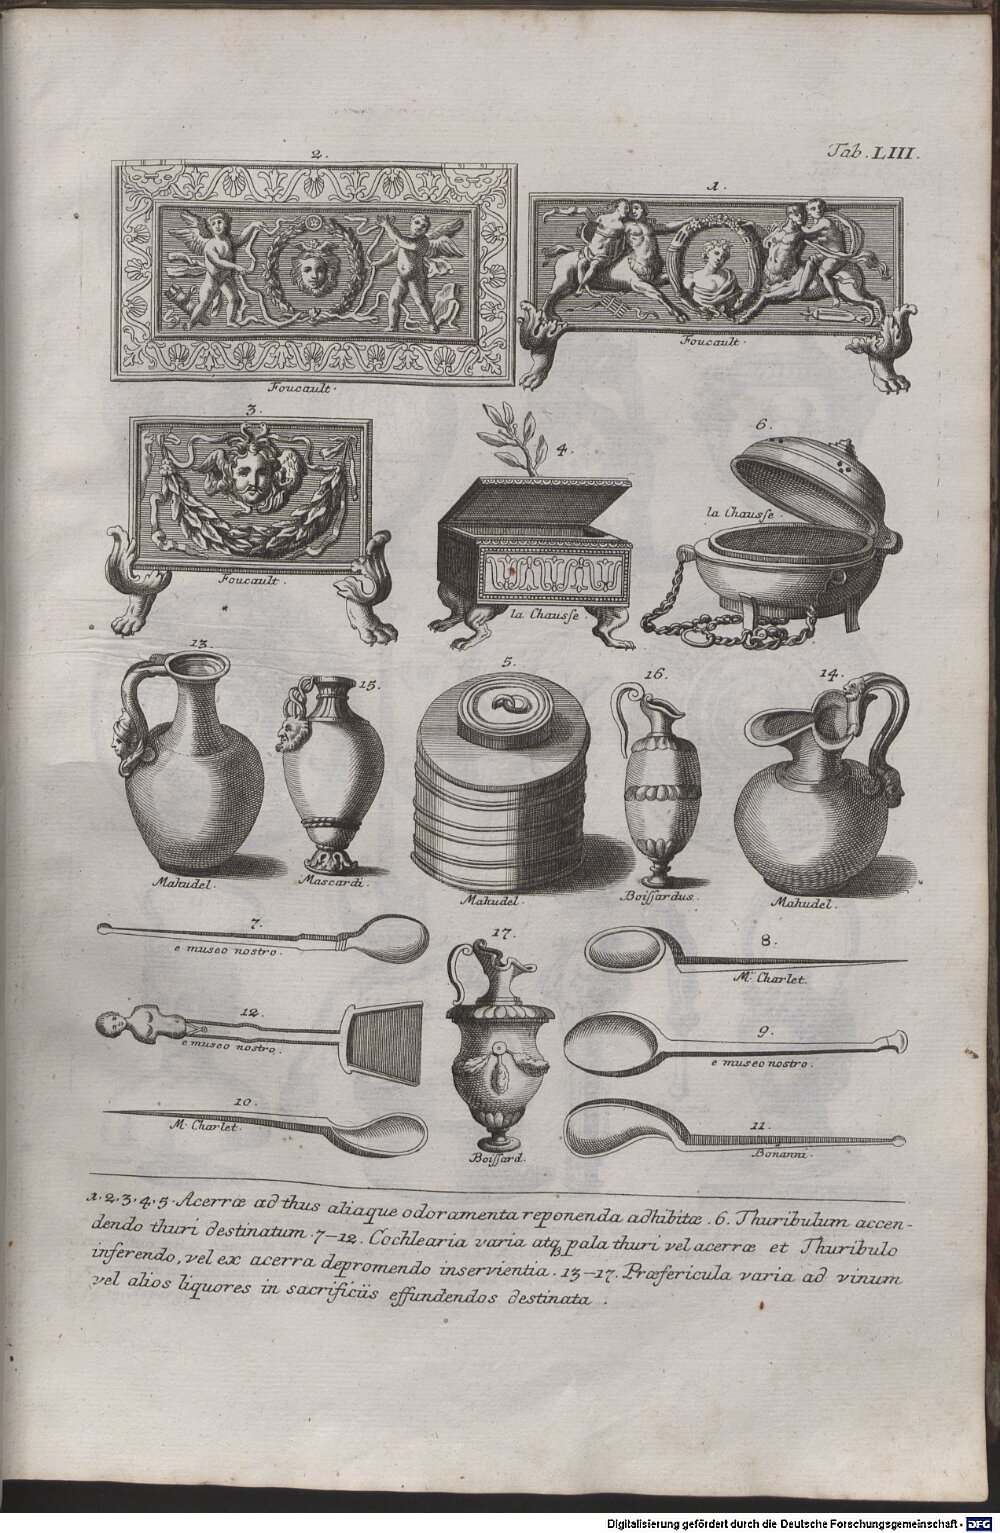 Tab. LIII.
2.
1.
Foucault.
Foucault.
3.
4.
6.
la Chausse.
Foucault.
la Chausse.
13.
15.
5.
16.
14.
Mahudel.
Mascardi.
Mahudel.
Boissardus.
Mahudel.
7.
e museo nostro.
17.
8.
Mr. Charlet.
12.
e museo nostro.
9.
e museo nostro.
10.
M. Charlet.
11.
Bonanni.
Boissard.
1.2.3.4.5. Acerræ ad thus aliaque odoramenta reponenda adhibitæ. 6. Thuribulum accen-
dendo thuri destinatum. 7–12. Cochlearia varia atq pala thuri vel acerræ et Thuribulo
inferendo, vel ex acerra depromendo inservientia. 13–17. Præfericula varia ad vinum
vel alios liquores in sacrificiis effundendos destinata.
Digitalisierung gefördert durch die Deutsche Forschungsgemeinschaft - DFG